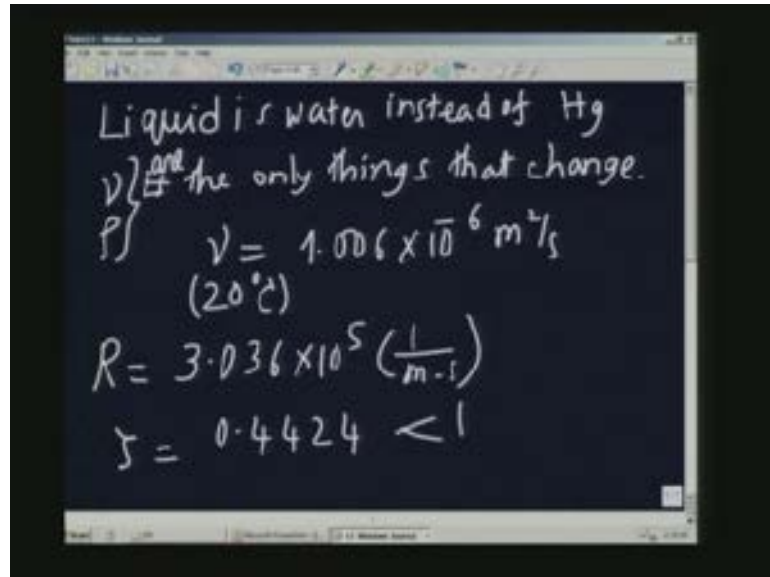 Liquid is water instead of Hg
ν } are the only things that change.
ρ }
ν = 1.006 × 10⁻⁶ m²/s
(20°C)
R = 3.036 × 10⁵ (1/m-s)
ζ = 0.4424 < 1